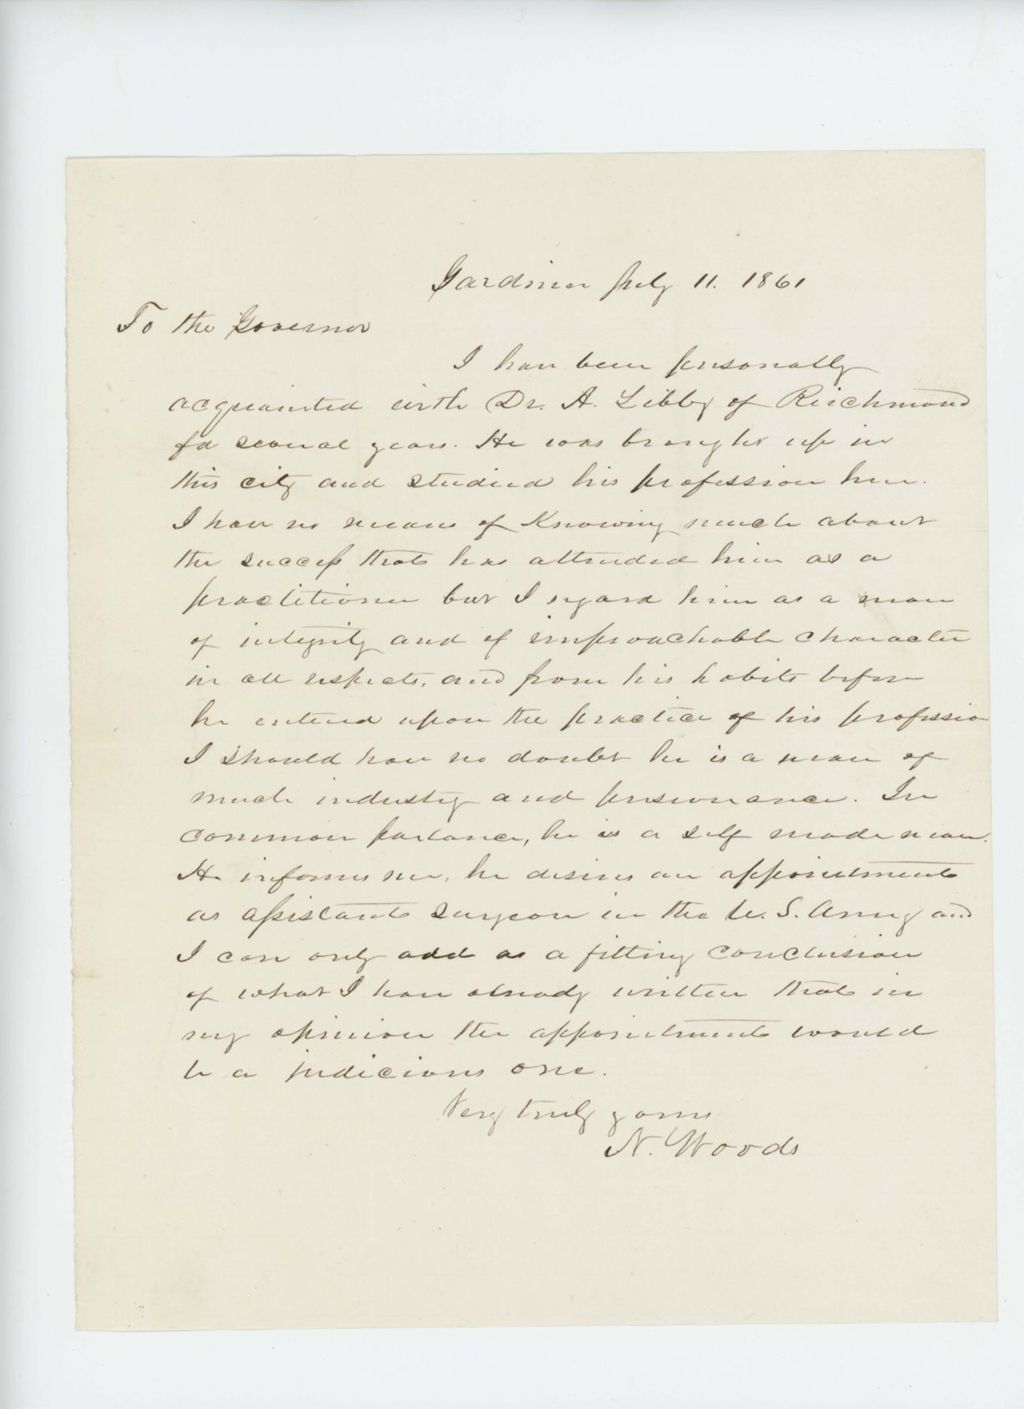 Gardiner July 11. 1861
To the Governor
I have been personally
acquainted with Dr. A. Libby of Richmond
for several years. He was brought up in
this city and studied his profession here.
I have no means of Knowing much about
the success that has attended him as a
practitioner but I regard him as a man
of integrity and of improachable character
in all respects, and from his habits before
he entered upon the practice of his profession
I should have no doubt he is a man of
much industry and perseverance. In
common parlance, he is a self made man.
He informs me, he desires an appointment
as assistant Surgeon in the U. S. Army and
I can only add as a fitting conclusion
of what I have already written that in
my opinion the appointment would
be a judicious one.
Very truly yours
N. Woods